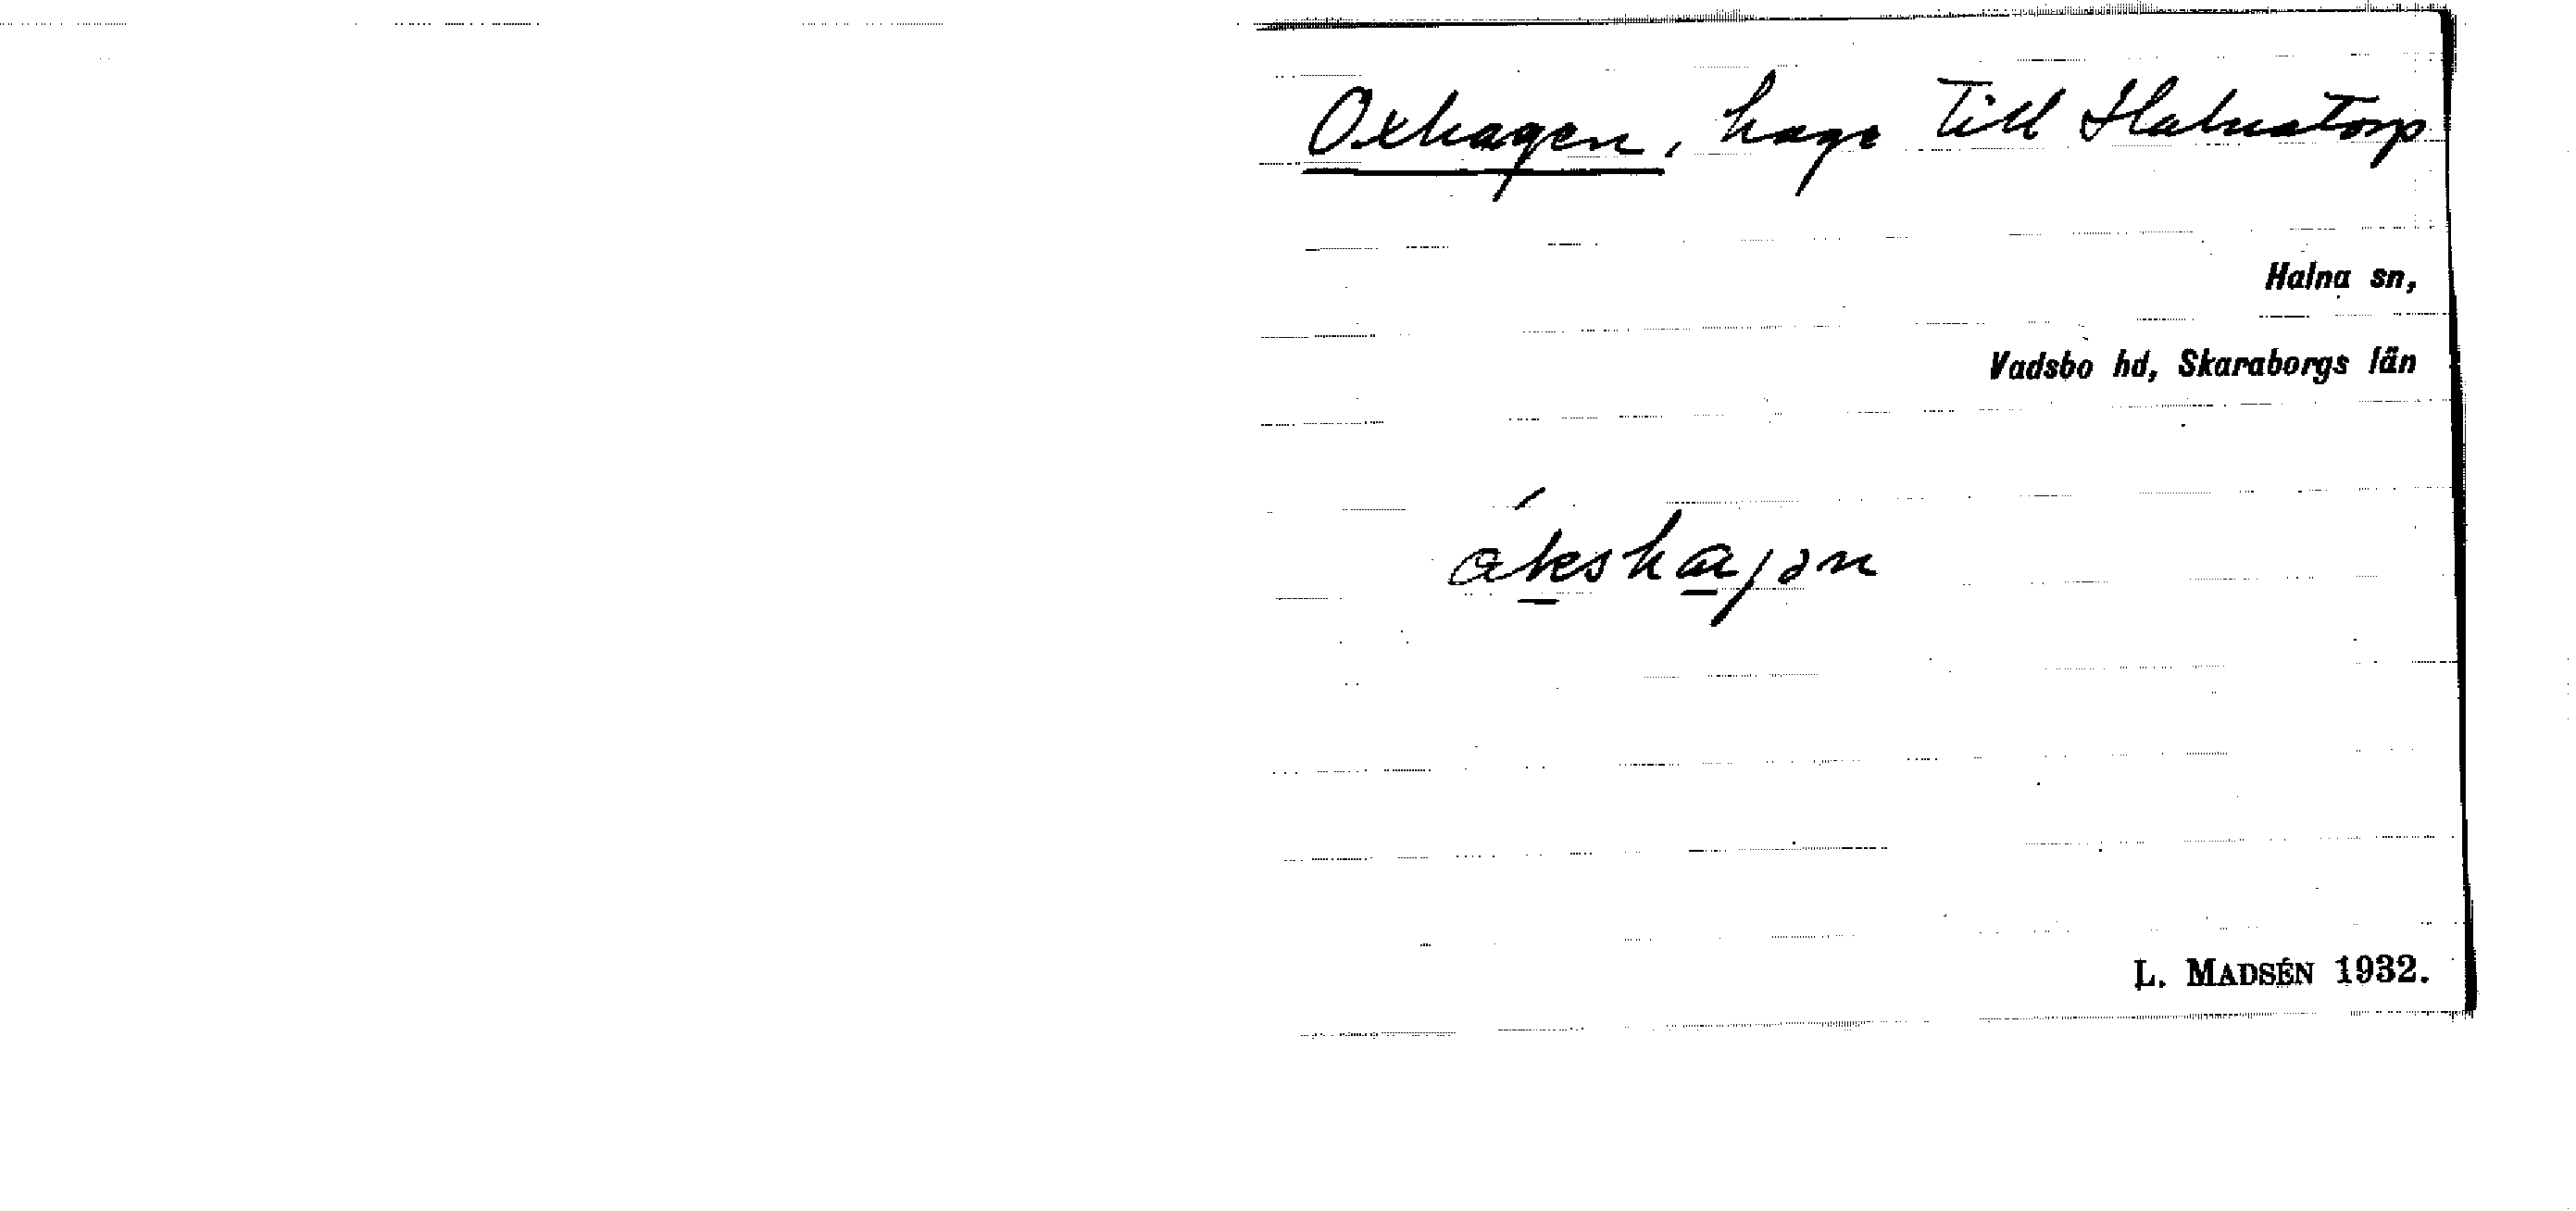 Oxhagen, hage till Halnatorp
Halna sn,
Vadsbo hd, Skaraborgs län
L. MADSÉN 1932.